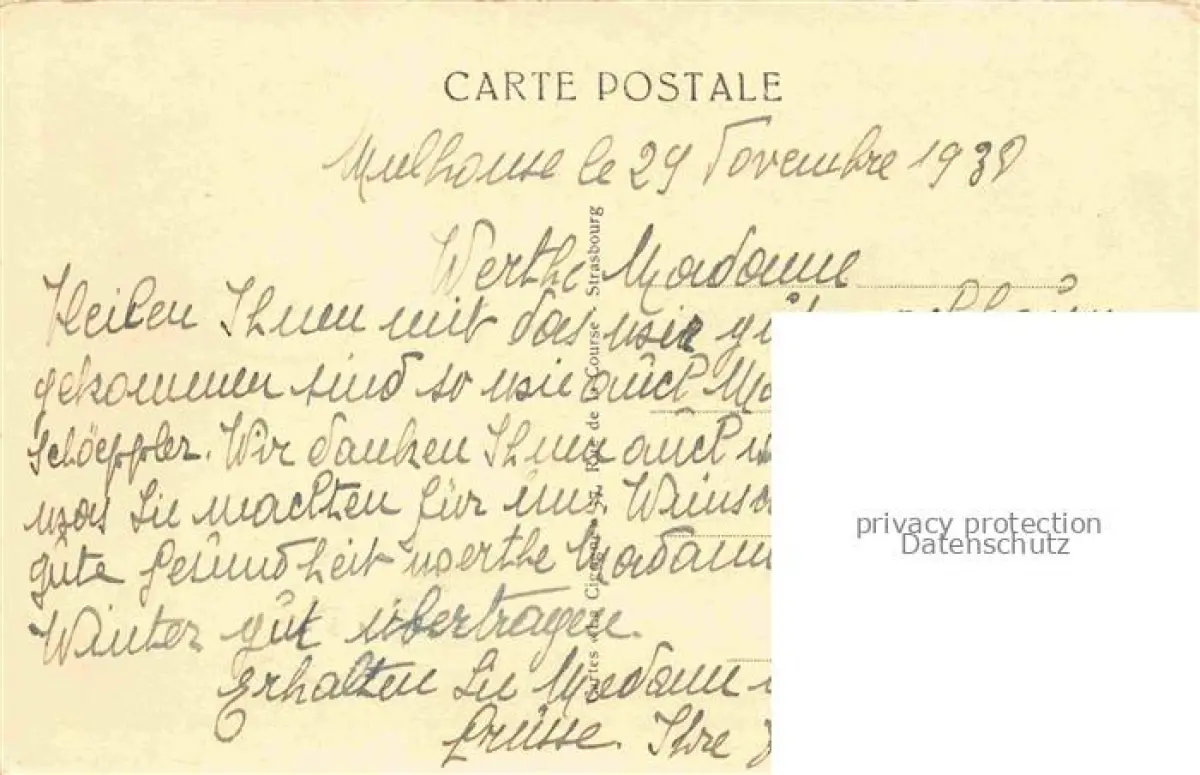 CARTE POSTALE
Mulhouse le 29 Novembre 1938
Werthe Madame
Teilen Ihnen mit das wir gut
gekommen sind so wie auch
Schöeppler. Wir danken Ihnen auch
was Sie machten für uns.
gute Gesundheit werthe Madame
Winter gut übertragen.
Erhalten Sie Madame
Grüsse. Ihre
Cartes «La Cigogne» 37, Rue de la Course Strasbourg
privacy protection
Datenschutz